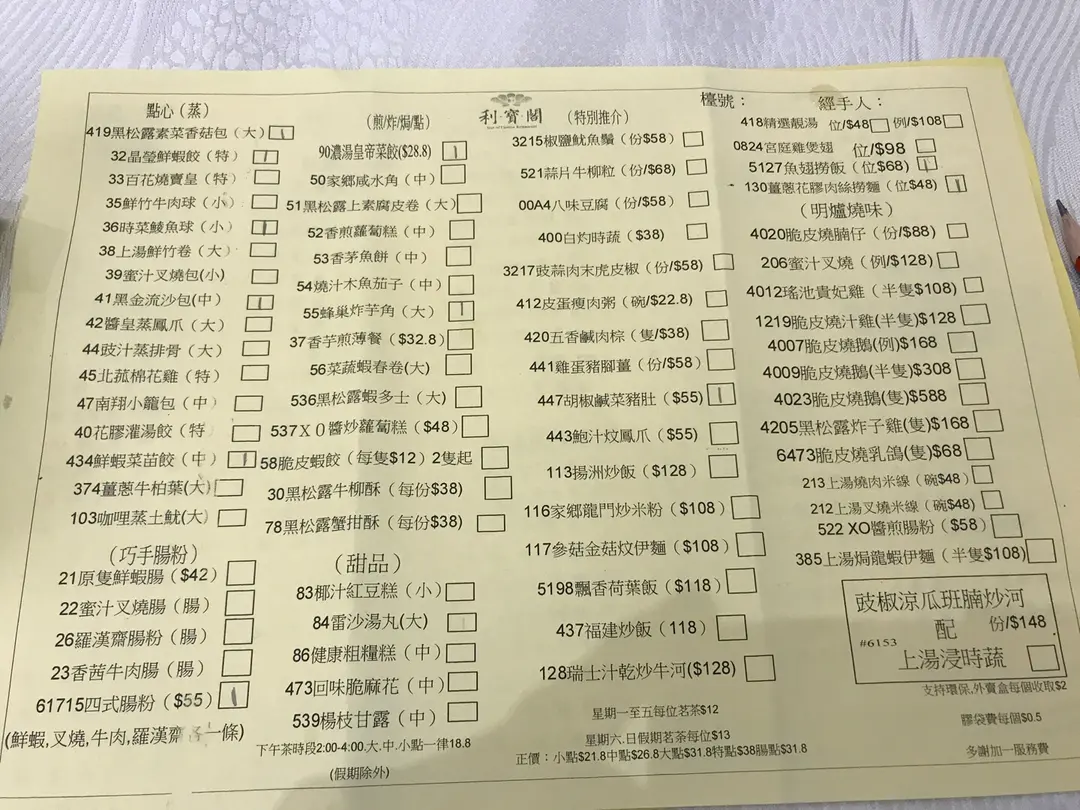 點心（蒸）
419黑松露素菜香菇包（大）
32晶瑩鮮蝦餃（特）
33百花燒賣皇（特）
35鮮竹牛肉球（小）
36時菜鯪魚球（小）
38上湯鮮竹卷（大）
39蜜汁叉燒包(小)
41黑金流沙包(中)
42醬皇蒸鳳爪（大）
44豉汁蒸排骨（大）
45北菰棉花雞（特）
47南翔小籠包（中）
40花膠灌湯餃（特
434鮮蝦菜苗餃（中）
374薑蔥牛柏葉(大)
103咖哩蒸土魷(大)
（巧手腸粉）
21原隻鮮蝦腸（$42）
22蜜汁叉燒腸（腸）
26羅漢齋腸粉（腸）
23香茜牛肉腸（腸）
61715四式腸粉（$55）
(鮮蝦,叉燒,牛肉,羅漢齋各一條)
（煎/炸/焗/點）
90濃湯皇帝菜餃($28.8)
50家鄉咸水角（中）
51黑松露上素腐皮卷（大）
52香煎蘿蔔糕（中）
53香茅魚餅（中）
54燒汁木魚茄子（中）
55蜂巢炸芋角（大）
37香芋煎薄餐（$32.8）
56菜蔬蝦春卷(大)
536黑松露蝦多士（大）
537ＸＯ醬炒蘿蔔糕（$48）
58脆皮蝦餃（每隻$12）2隻起
30黑松露牛柳酥（每份$38）
78黑松露蟹拑酥（每份$38）
（甜品）
83椰汁紅豆糕（小）
84雷沙湯丸(大)
86健康粗糧糕（中）
473回味脆麻花（中）
539楊枝甘露（中）
下午茶時段2:00-4:00.大.中.小點一律18.8
(假期除外)
利寶閣
（特別推介）
3215椒鹽魷魚鬚（份$58）
521蒜片牛柳粒（份/$68）
00A4八味豆腐（份/$58）
400白灼時蔬（$38）
3217豉蒜肉末虎皮椒（份/$58）
412皮蛋瘦肉粥（碗/$22.8）
420五香鹹肉棕（隻/$38）
441雞蛋豬腳薑（份/$58）
447胡椒鹹菜豬肚（$55）
443鮑汁炆鳳爪（$55）
113揚洲炒飯（$128）
116家鄉龍門炒米粉（$108）
117參菇金菇炆伊麵（$108）
5198飄香荷葉飯（$118）
437福建炒飯（118）
128瑞士汁乾炒牛河($128)
星期一至五每位茗茶$12
星期六.日假期茗茶每位$13
正價：小點$21.8中點$26.8大點$31.8特點$38腸點$31.8
檯號：
經手人：
418精選靚湯 位/$48 例/$108
0824宮庭雞煲翅 位/$98
5127魚翅撈飯（位$68）
130薑蔥花膠肉絲撈麵（位$48）
（明爐燒味）
4020脆皮燒腩仔（份/$88）
206蜜汁叉燒（例/$128）
4012瑤池貴妃雞（半隻$108）
1219脆皮燒汁雞(半隻)$128
4007脆皮燒鵝(例)$168
4009脆皮燒鵝(半隻)$308
4023脆皮燒鵝(隻)$588
4205黑松露炸子雞(隻)$168
6473脆皮燒乳鴿(隻)$68
213上湯燒肉米線（碗$48）
212上湯叉燒米線（碗$48）
522 XO醬煎腸粉（$58）
385上湯焗龍蝦伊麵（半隻$108）
豉椒涼瓜班腩炒河
配 份/$148
#6153
上湯浸時蔬
支持環保,外賣盒每個收取$2
膠袋費每個$0.5
多謝加一服務費